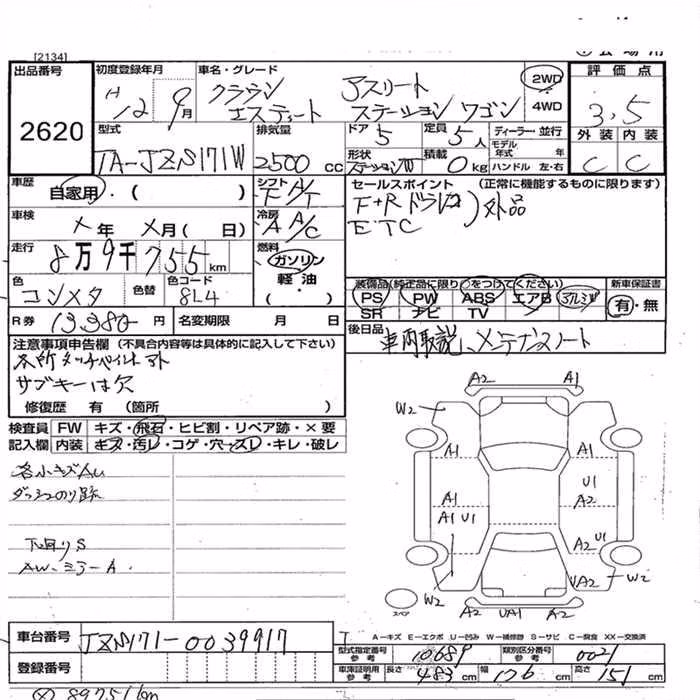 [2134]
出品番号 2620
初度登録年月 H 12年 9月
車名・グレード クラウン アスリート
エステート ステーション ワゴン
2WD
4WD
評価点 3.5
外装 内装
C C
型式 TA-JZS171W
排気量 2500 cc
ドア 5 定員 5人
形状 ステーションW 積載 0 kg
ディーラー・並行
モデル年式 年
ハンドル 左・右
車歴 自家用・( )
シフト F A/T
セールスポイント (正常に機能するものに限ります)
F+Rドラレコ)外品
ETC
車検 X年 X月( 日)
冷房 A A/C
走行 8万9千755km
燃料 ガソリン
軽油・
色 コンメタ 色替 色コード 8L4
装備品(純正品に限り○をつけてください) 新車保証書
PS PW ABS エアB アルミW 有・無
SR ナビ TV
R券 13,380円 名変期限 月 日
後日品 車両取説、メンテナンスノート
注意事項申告欄 (不具合内容等は具体的に記入して下さい)
各所タッチペイントアト
サブキーは欠
修復歴 有 (箇所 )
検査員 FW キズ・飛石・ヒビ割・リペア跡・×要
記入欄 内装 キズ・汚レ・コゲ・穴・スレ・キレ・破レ
各小キズAU
ダッシュのり跡
下廻りS
AW、ミラーA.
A2 A1
W2
A1 A1
U1
A1 A2
A1 U1
A2 U1
UA2 W2
W2 A2 UA1 A2
スペア
A−キズ E−エクボ U−凹み W−補修跡 S−サビ C−腐食 XX−交換済
車台番号 JZS171-0039917
型式指定番号 参考 10689 類別区分番号 参考 0021
登録番号
車庫証明用 参考 長さ 483 cm 幅 176 cm 高さ 151 cm
89751km